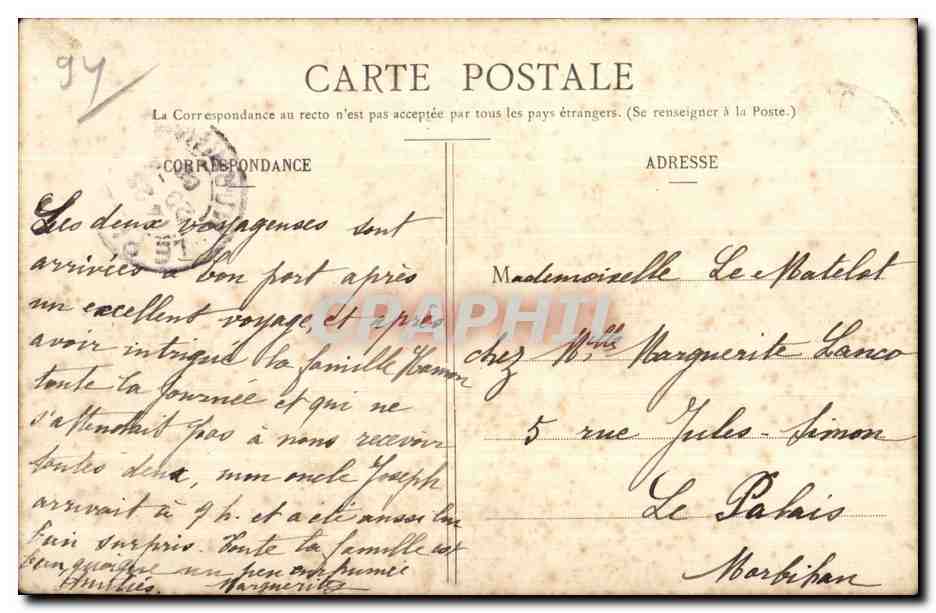 94
CARTE POSTALE
La Correspondance au recto n'est pas acceptée par tous les pays étrangers. (Se renseigner à la Poste.)
CORRESPONDANCE
Les deux voyageuses sont
arrivées à bon port après
un excellent voyage, et après
avoir intrigué la famille Hamon
toute la journée et qui ne
s'attendait pas à nous recevoir
toutes deux, mon oncle Joseph
arrivait à 9 h. et a été aussi lui
bien surpris. Toute la famille est
bien, quoique un peu enrhumée
Amitiés. Marguerite
ADRESSE
Mademoiselle Le Matelot
chez Mlle Marguerite Lanco
5 rue Jules-Simon
Le Palais
Morbihan
CRAPHIL